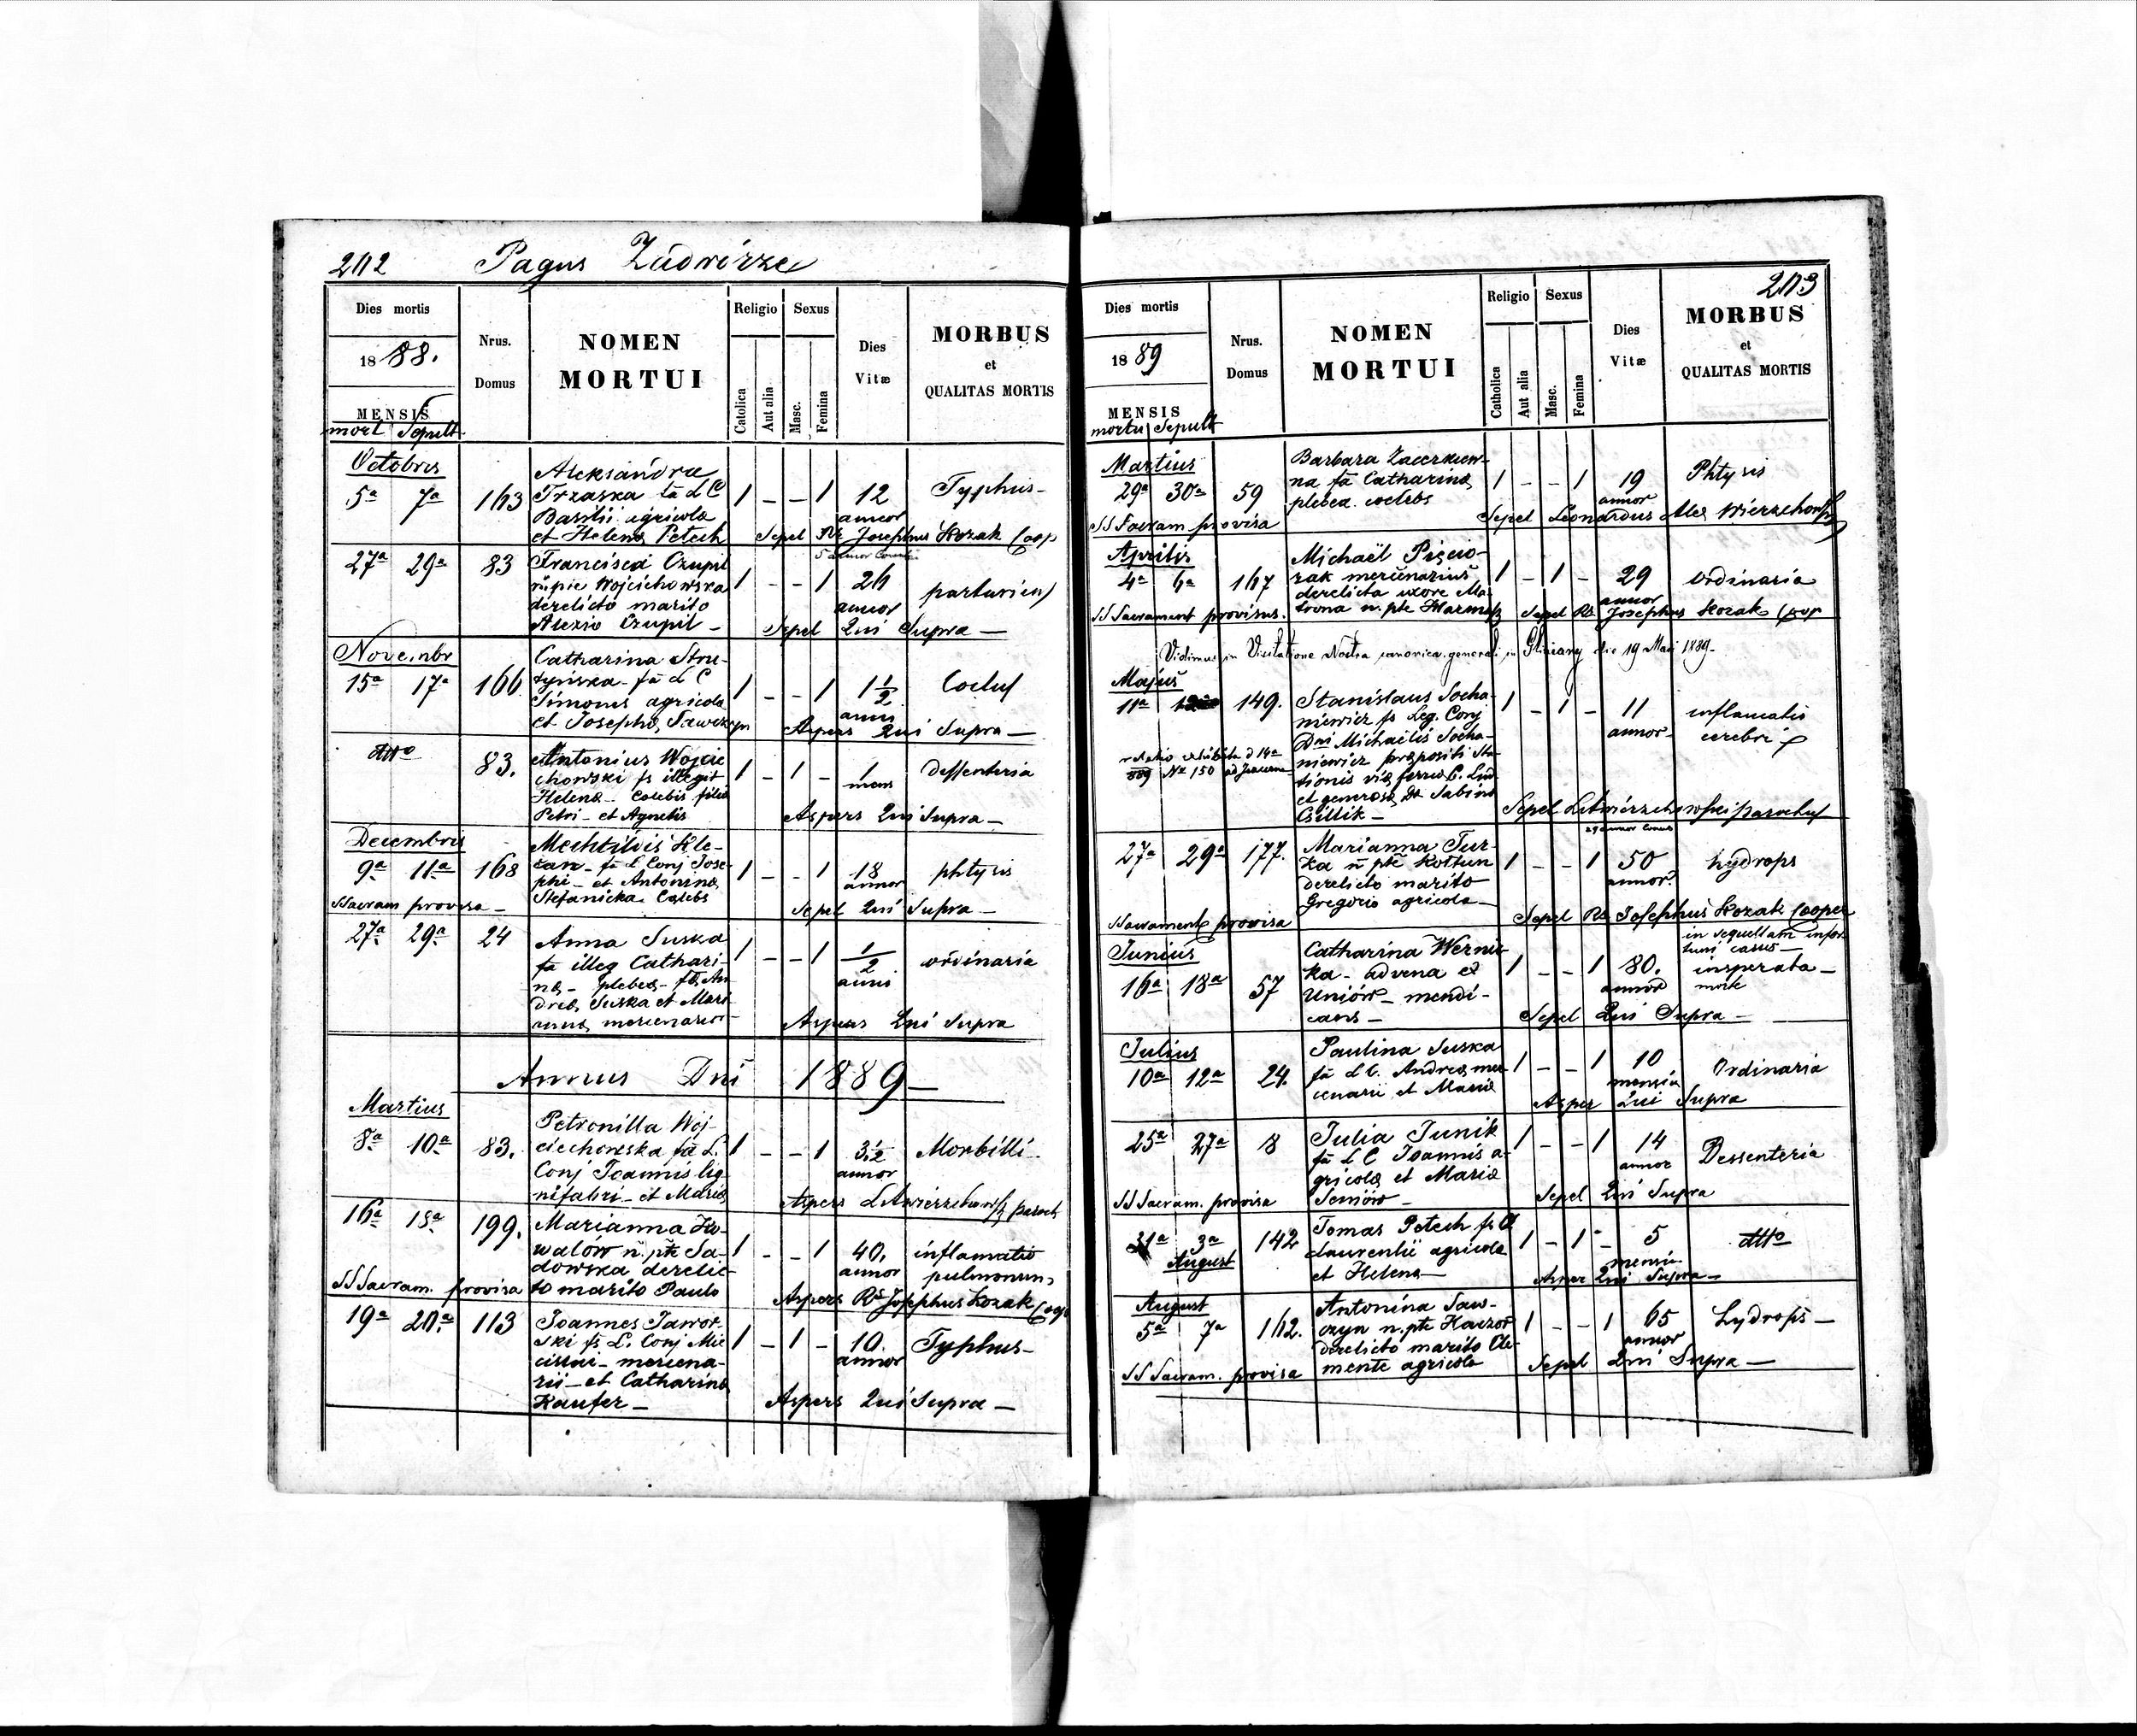 202 Pagus Zadwórze
Dies mortis
1888.
MENSIS
mort Sepult
Nrus.
Domus
NOMEN
MORTUI
Religio
Catolica
Aut alia
Sexus
Masc.
Femina
Dies
Vitæ
MORBUS
et
QUALITAS MORTIS
Octobris
5a 7a 163
Aleksandra
Trzaska fa L C
Basilii agricola
et Helena Petech
1 - - 1 12 annor Typhus -
Sepel Rs Josephus Kozak Coop
27a 29a 83
Francisca Czupil
n. pte Wojciechowska
derelicto marito
Alexio Czupil -
5 annor
1 - - 1 26 annor parturiens
Sepel Qui Supra -
Novembr
15a 17a 166
Catharina Stru-
tyńska fa L C
Simonis agricola
et Josepha Sawczyn
1 - - 1 1 1/2 anni
Aspers Qui Supra -
dtto 83.
Antonius Wojcie
chowski fs illegit
Helena - Celebis filia
Petri - et Agnetis
1 - 1 - 1 mens dessenteria
Aspers Qui Supra -
Decembris
9a 11a 168
Mechtildis
fa L Conj Jose-
phi - et Antonina
Stefanicka Celebs
1 - - 1 18 annor phtysis
SSacram provisa -
Sepel Qui Supra -
27a 29a 24
Anna Suska
fa illeg Cathari-
na - plebea - fa An
drea Suska et Mari
anna mercenarior
1 - - 1 1/2 anni ordinaria
Aspers Qui Supra
Annus Dni 1889 -
Martius
8a 10a 83.
Petronilla Woj-
ciechowska fa L.
Conj Joannis lig-
nifabri - et Maria
1 - - 1 3 1/2 annor Morbilli -
Aspers LAWierzchowski paroch
16a 18a 199.
Marianna Ko-
walów n. pte Sa-
dowska derelic-
to marito Paulo
1 - - 1 40. annor inflamatio
pulmonum
SSSacram. provisa
Aspers Rs Josephus Kozak Coop
19a 20a 113
Joannes Jawor-
ski fs L. Conj Mie
cislai - mercena-
rii - et Catharina
Kaufer -
1 - 1 - 10. annor Typhus -
Aspers Qui Supra -
203
Dies mortis
1889
MENSIS
mortu Sepult
Nrus.
Domus
NOMEN
MORTUI
Religio
Catholica
Aut alia
Sexus
Masc.
Femina
Dies
Vitæ
MORBUS
et
QUALITAS MORTIS
Martius
29a 30a 59
Barbara
na fa Catharina
plebea. coelebs
1 - - 1 19 annor Phtysis
SSSacram provisa
Sepel Leonardus Alex Wierzchowski
Aprilis
4a 6a 167
Michaël Pięcio-
rak mercenarius
derelicta uxore Ma-
trona n. pte
1 - 1 - 29 annor ordinaria
SSSacrament provisus.
Sepel Rs Josephus Kozak Coop
Vidimus in Visitatione Nostra canonica generali in Gliniany die 19 Maii 1889 -
Majus
11a 149.
Stanislaus Socha-
niewicz fs Leg. Conj
Dni Michaëlis Socha-
niewicz præpositi sta-
tionis viæ ferrea C. Lud
et generosa Da Sabina
Csillik -
1 - 1 - 11 annor inflamatio
cerebri
relatio exhibita d 14a
889 No 150
Sepel LAWierzchowski parochus
27a 29a 177.
Marianna Tur-
ka n pte Kołtun
derelicto marito
Gregorio agricola -
1 - - 1 50 annor. hydrops
SSacrament provisa
Sepel Rs Josephus Kozak Cooper
Junius
16a 18a 57
Catharina
ka - advena ex
Uniów - mendi-
cans -
1 - - 1 80. annor
in sequellam infor-
tuni casus -
insperata -
mors
Sepel Qui Supra -
Julius
10a 12a 24.
Paulina Suska
fa L C. Andrea mer
cenarii et Maria
1 - - 1 10 mensiu Ordinaria
Asper Qui Supra
25a 27a 8
Julia Junik
fa L C Joannis a-
gricola et Maria
Seniów -
1 - - 1 14 annor Dessenteria
SSSacram. provisa
Sepel Qui Supra
31a 3a August 142
Tomas Petech fs
Laurentii agricola
et Helena -
1 - 1 - 5 mensiu dtto
Asper Qui Supra -
August
5a 7a 162.
Antonina Saw-
czyn n. pte Kaczor
derelicto marito Cle-
mente agricola
1 - - 1 65 annor Hydrops -
SSSacram. provisa
Sepel Qui Supra -